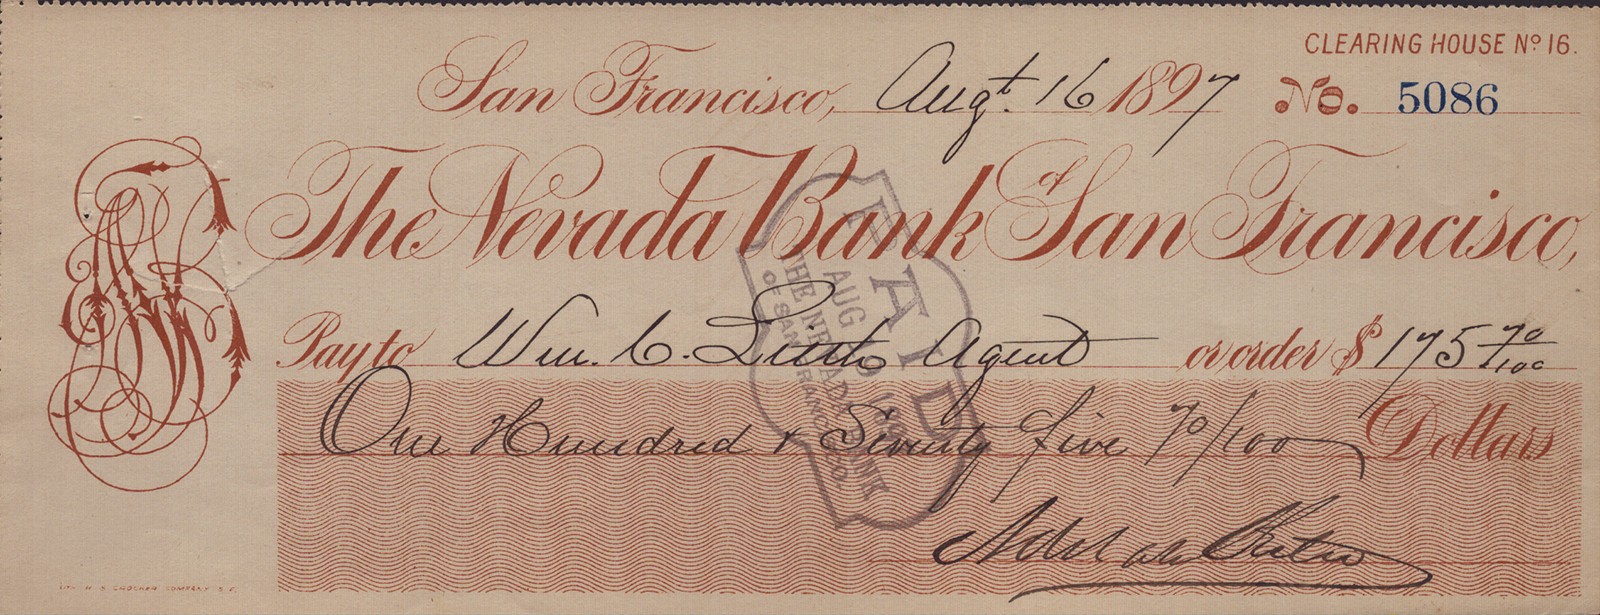 CLEARING HOUSE No 16.
San Francisco, Augt. 16 1897 No. 5086
The Nevada Bank of San Francisco,
Pay to Wm. C. Agent or order $ 175 70/100
One Hundred & Seventy five 70/100 Dollars
PAID
AUG
THE NEVADA BANK
OF SAN FRANCISCO
LITH. H. S. CROCKER COMPANY S. F.